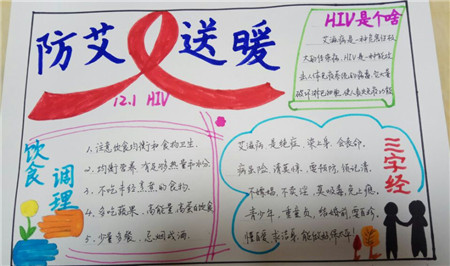 防艾送暖
12.1 HIV
HIV是个啥
艾滋病是一种危害性极
大的传染病,HIV是一种能攻
击人体免疫系统的病毒,它大量
破坏淋巴细胞,使人丧失免疫功能
饮食调理
1、注意饮食均衡和食物卫生.
2、均衡营养 有足够热量和水分
3、不吃未经煮熟的食物.
4、多吃蔬果,高能量,高蛋白饮食
5、少量多餐,忌烟戒酒.
三字经
艾滋病,是绝症,染上身,会丧命,
病凶险,猜莫缘,要预防,须认清,
不嫖娼,不卖淫,莫吸毒,免上瘾,
青少年,重童贞,结婚前,要自珍,
懂自爱,